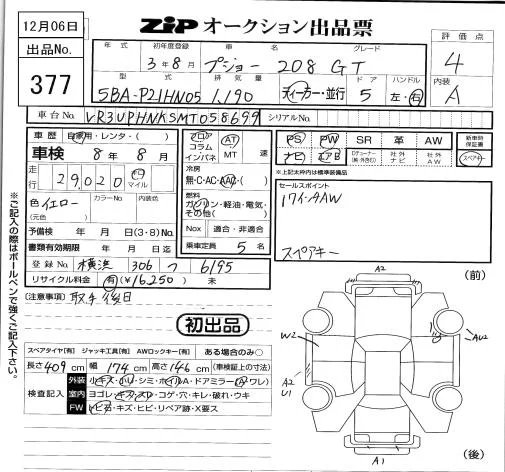 12月06日
ZiPオークション出品票
出品No.
377
評価点
4
内装
A
年式 初年度登録 車名 グレード
3年8月 プジョー 208 GT
型式 排気量 ドア ハンドル
5BA-P21HN05 1,190 ディーラー・並行 5 左・右
車台No. VR3UPHNKSMT058699 シリアルNo.
車歴 自家用・レンタ・( )
車検 8年 8月
走行 29,020 キロ マイル
色 イエロー (元色) カラーNo. 内装色
予備検 年 月 日(3・8)No.
書類有効期限 年 月 日迄
登録No. 横浜 306 つ 6195
リサイクル料金 有(¥16,250) 未
フロア コラム インパネ
AT MT 速
冷房
無・C・AC・AAC・( )
燃料
ガソリン・軽油・電気・その他( )
Nox 適合・非適合
乗車定員 5 名
PS PW SR 革 AW
ナビ エアB Dチューナー(純・外含む) 社外ナビ 社外AW
新車時保証書
スペアキー
※上記太枠内は標準装備品
セールスポイント
17インチAW
スペアキー
[注意事項] 取手後日
初出品
スペアタイヤ[有] ジャッキ工具[有] AWロックキー[有] ある場合のみ○
長さ 409 cm 幅 174 cm 高さ 146 cm (車検証上の寸法)
検査記入
外装 小キズ・小ヘコ・シミ・ホイルA・ドアミラー(A・ワレ)
室内 ヨゴレ・キズ・スレ・コゲ・穴・キレ・破れ・ウキ
FW トビ石・キズ・ヒビ・リペア跡・X要ス
※ご記入の際はボールペンで強くご記入下さい。
(前)
A2
W2
AW2
A2
U1
A1
(後)